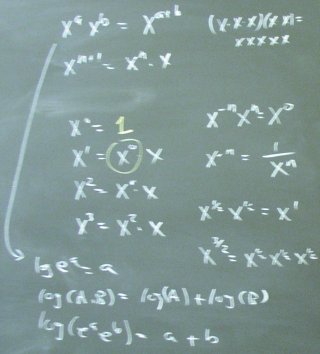 xᵃ xᵇ = xᵃ⁺ᵇ
(x·x·x)(x·x)=
xxxxx
xⁿ⁺¹ = xⁿ·x
x⁰ = 1
x¹ = x⁰ x
x² = x¹·x
x³ = x²·x
x⁻ⁿ xⁿ = x⁰
x⁻ⁿ = 1/xⁿ
log eᵃ = a
log(A·B) = log(A) + log(B)
log(eᵃ eᵇ) = a + b